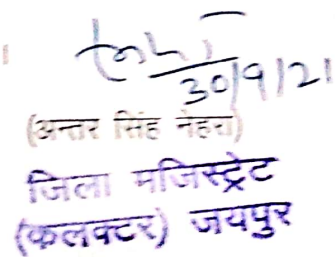 30/9/21
(अन्तर सिंह नेहरा)
जिला मजिस्ट्रेट
(कलक्टर) जयपुर